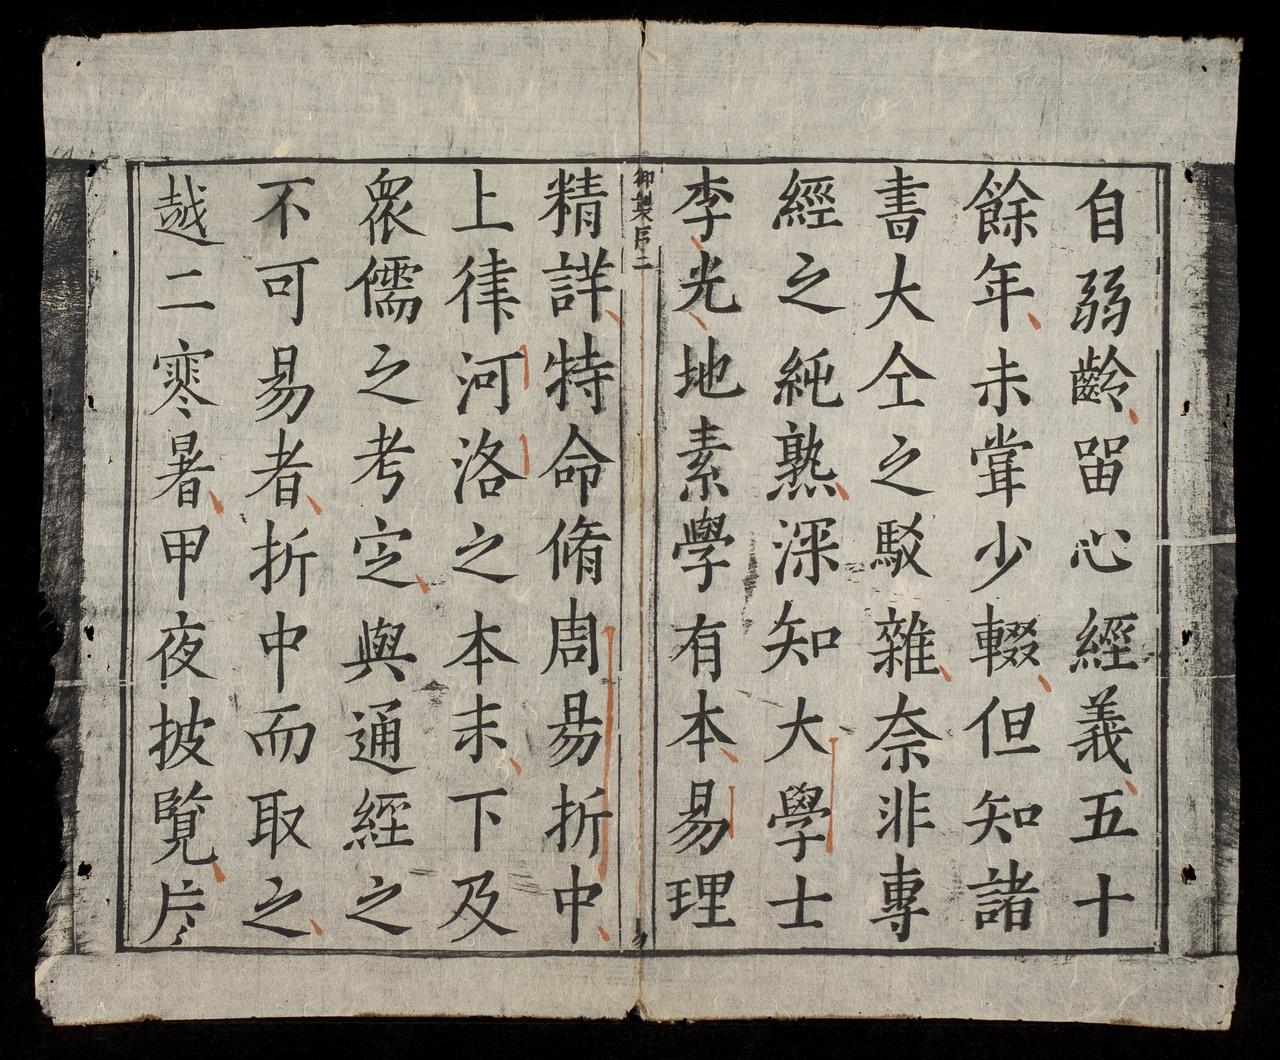 自弱齡留心經義五十
餘年未甞少輟但知諸
書大仝之駁雜奈非專
經之純熟深知大學士
李光地素學有本易理
御製序二
精詳特命脩周易折中
上律河洛之本末下及
衆儒之考定與通經之
不可易者折中而取之
越二寒暑甲夜披覽片